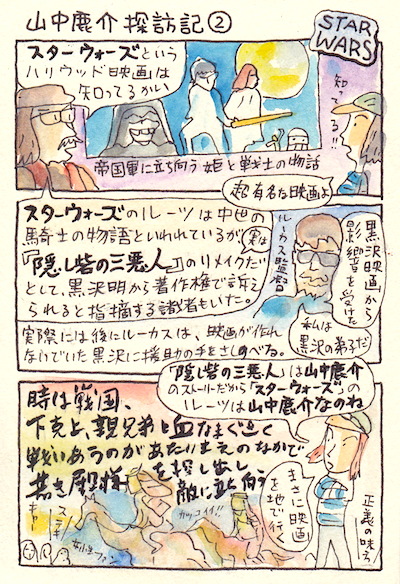 山中鹿介探訪記②
STAR
WARS
スターウォーズという
ハリウッド映画は
知ってるかい
知ってる!!
帝国軍に立ち向う姫と戦士の物語
超有名な映画よ
スターウォーズのルーツは中世の
騎士の物語といわれているが実は
『隠し砦の三悪人』のリメイクだ
として、黒沢明から著作権で訴え
られると指摘する識者もいた。
ルーカス監督
黒沢映画から
影響を受けた
私は
黒沢の弟子だ
実際には後にルーカスは、映画が作れ
ないでいた黒沢に援助の手をさしのべる。
「隠し砦の三悪人」は山中鹿介
のストーリーだから「スターウォーズ」の
ルーツは山中鹿介なのね
時は戦国、
下克上、親兄弟と血なまぐさく
戦いあうのがあたりまえのなかで
若き殿様を探し出し、
敵に立向う
まさに映画
を地で行く
正義の味方
カッコイイ!!
ステキ
キャー